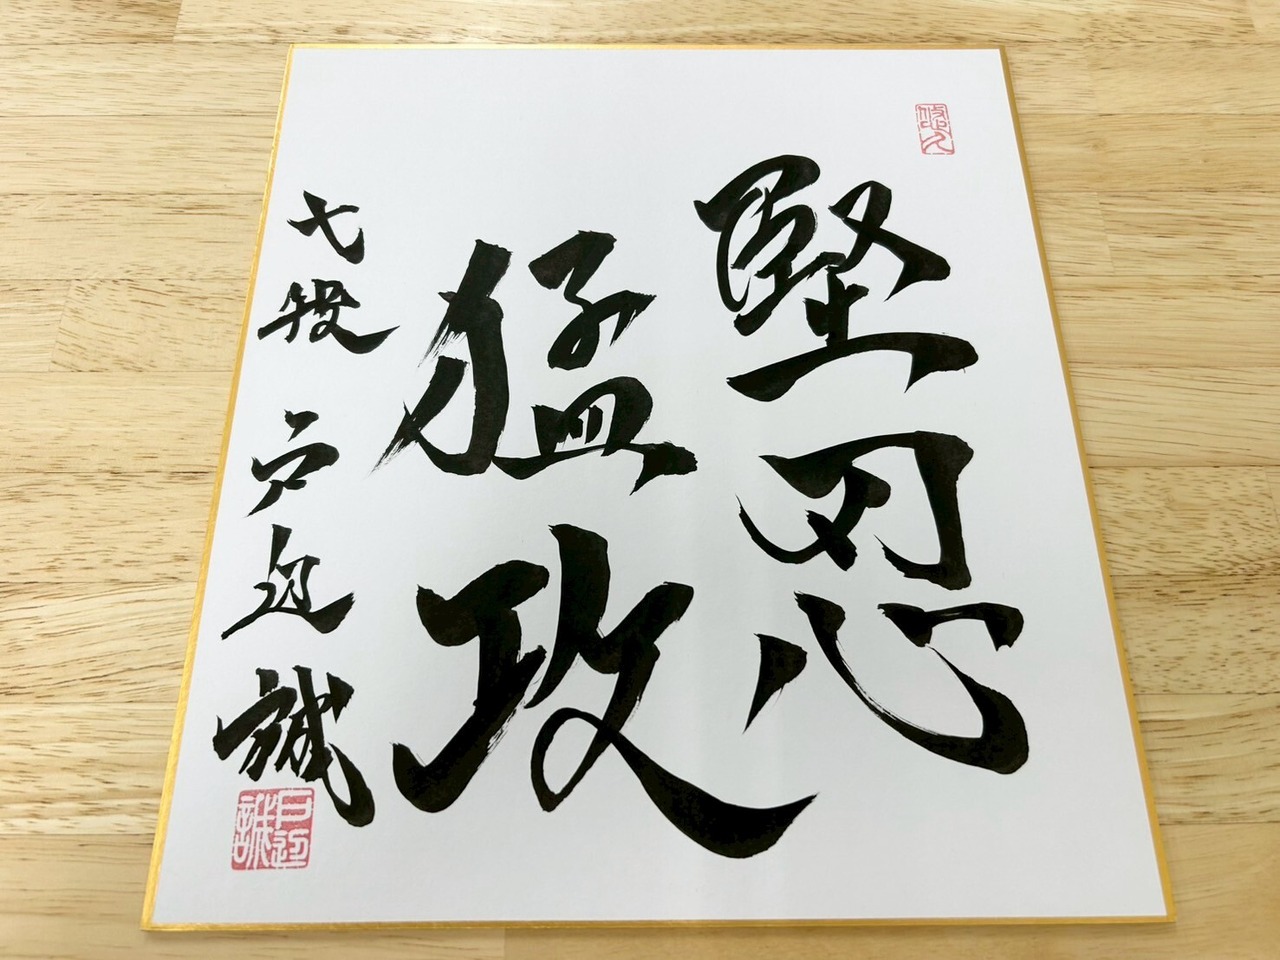 悠久
堅忍
猛攻
七段 戸辺 誠
戸辺誠